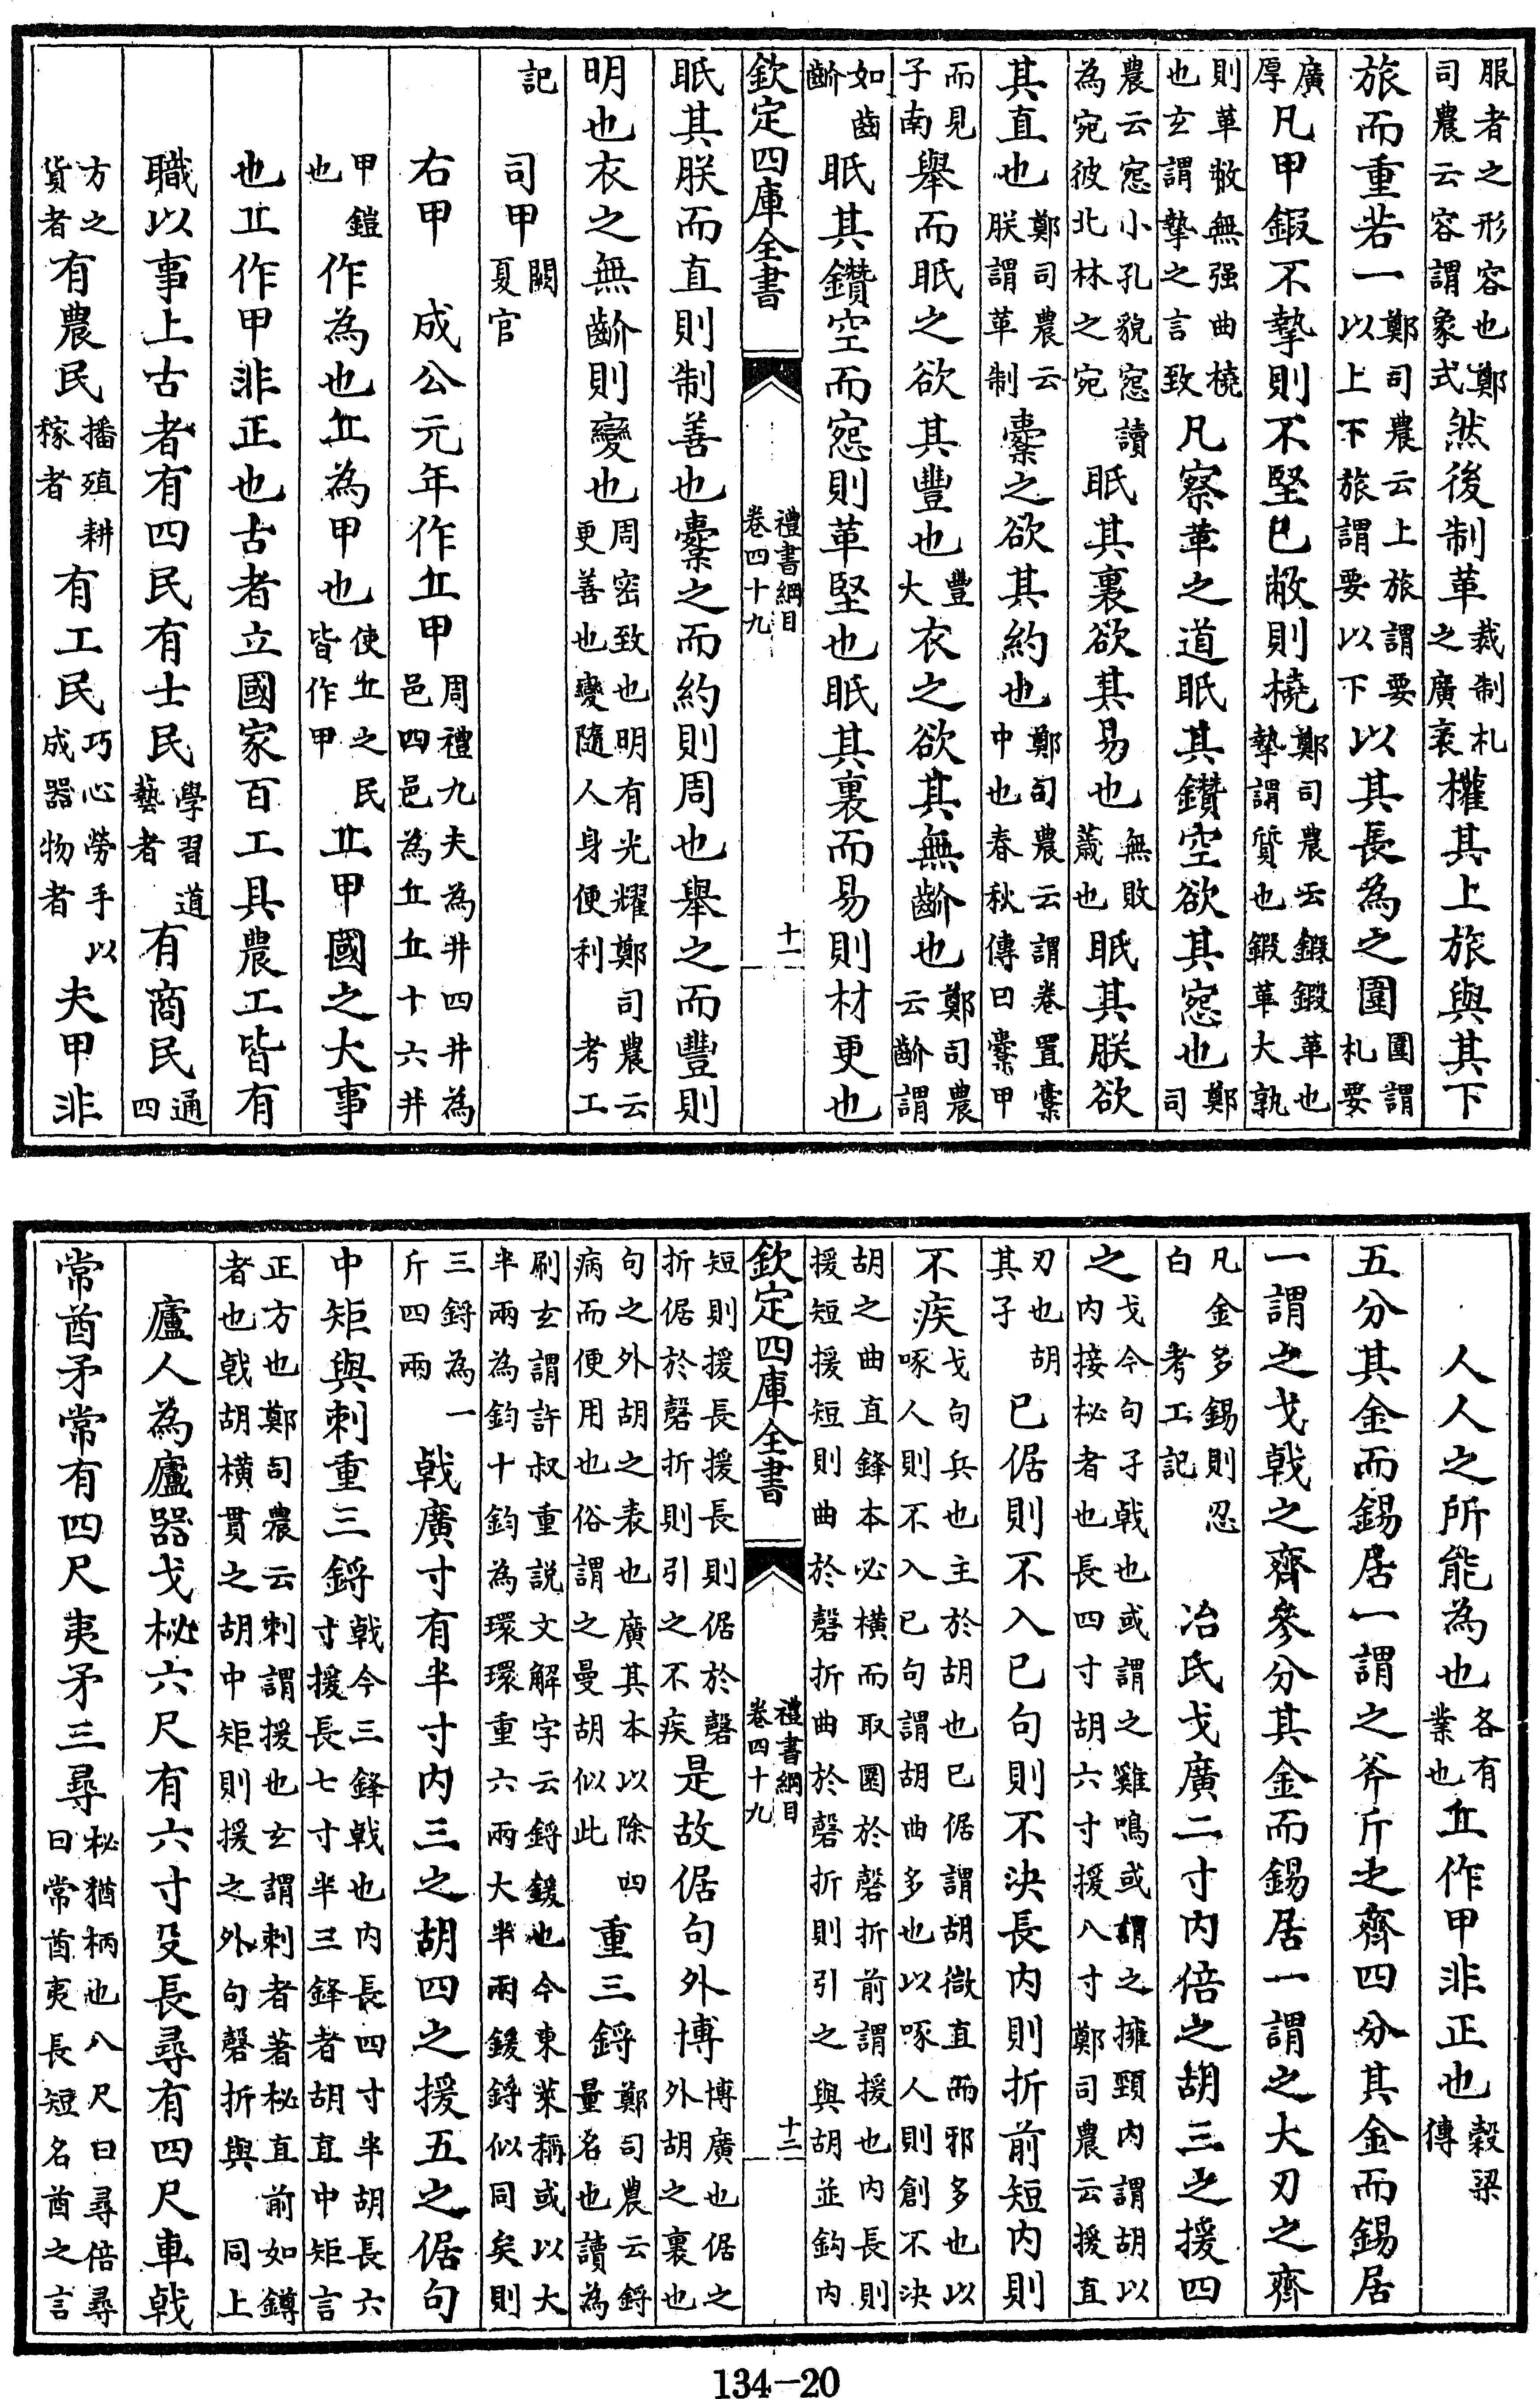 服者之形容也鄭司農云容謂象式然後制革裁制札之廣袤權其上旅與其下
旅而重若一鄭司農云上旅謂要以上下旅謂要以下以其長為之圍圍謂札要
廣厚凡甲鍜不摯則不堅已敝則橈鄭司農云鍜鍛革也摯謂質也鍜革大孰
則革敝無强曲橈也玄謂摯之言致凡察革之道眡其鑽空欲其窓也鄭司
農云窓小孔貌窓讀為宛彼北林之宛眡其裏欲其易也無敗薉也眡其朕欲
其直也鄭司農云朕謂革制櫜之欲其約也鄭司農云謂卷置櫜中也春秋傳曰櫜甲
而見子南舉而眡之欲其豐也豐大衣之欲其無齘也鄭司農云齘謂
如齒齘眡其鑽空而窓則革堅也眡其裏而易則材更也
欽定四庫全書
禮書綱目卷四十九
十一
眡其朕而直則制善也櫜之而約則周也舉之而豐則
明也衣之無齘則變也周密致也明有光耀鄭司農云更善也變隨人身便利考工
記司甲闕夏官
右甲成公元年作丘甲周禮九夫為井四井為邑四邑為丘丘十六井
甲鎧也作為也丘為甲也使丘之民皆作甲丘甲國之大事
也丘作甲非正也古者立國家百工具農工皆有
職以事上古者有四民有士民學習道藝者有商民通四
方之貨者有農民播殖耕稼者有工民巧心勞手以成器物者夫甲非
人人之所能為也各有業也丘作甲非正也穀梁傳
五分其金而錫居一謂之斧斤之齊四分其金而錫居
一謂之戈戟之齊參分其金而錫居一謂之大刃之齊
凡金多錫則忍白考工記冶氏戈廣二寸內倍之胡三之援四
之戈今句孑戟也或謂之雞鳴或謂之擁頸內謂胡以內接柲者也長四寸胡六寸援八寸鄭司農云援直
刃也胡其孑已倨則不入已句則不決長內則折前短內則
不疾戈句兵也主於胡也已倨謂胡微直而邪多也以啄人則不入已句謂胡曲多也以啄人則創不決
胡之曲直鋒本必橫而取圜於磬折前謂援也內長則援短援短則曲於磬折曲於磬折則引之與胡並鈎內
欽定四庫全書
禮書綱目卷四十九
十二
短則援長援長則倨於磬折倨於磬折則引之不疾是故倨句外博博廣也倨之外胡之裏也
句之外胡之表也廣其本以除四病而便用也俗謂之曼胡似此重三鋝鄭司農云鋝量名也讀為
刷玄謂許叔重說文解字云鋝鍰也今東萊稱或以大半兩為鈞十鈞為環環重六兩大半兩鍰鋝似同矣則
三鋝為一斤四兩戟廣寸有半寸內三之胡四之援五之倨句
中矩與刺重三鋝戟今三鋒戟也內長四寸半胡長六寸援長七寸半三鋒者胡直中矩言
正方也鄭司農云刺謂援也玄謂刺者著柲直前如鐏者也戟胡橫貫之胡中矩則援之外句磬折與同上
廬人為廬器戈柲六尺有六寸殳長尋有四尺車戟
常酋矛常有四尺夷矛三尋柲猶柄也八尺曰尋倍尋曰常酋夷長短名酋之言
134—20